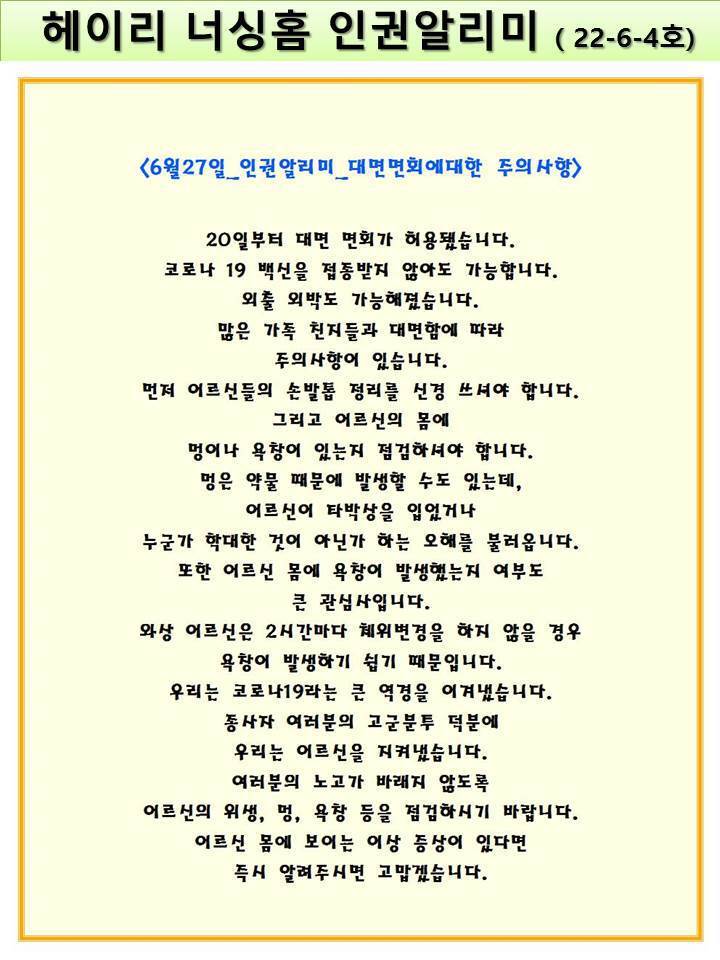 헤이리 너싱홈 인권알리미 ( 22-6-4호)
<6월27일_인권알리미_대면면회에대한 주의사항>
20일부터 대면 면회가 허용됐습니다.
코로나 19 백신을 접종받지 않아도 가능합니다.
외출 외박도 가능해졌습니다.
많은 가족 친지들과 대면함에 따라
주의사항이 있습니다.
먼저 어르신들의 손발톱 정리를 신경 쓰셔야 합니다.
그리고 어르신의 몸에
멍이나 욕창이 있는지 점검하셔야 합니다.
멍은 약물 때문에 발생할 수도 있는데,
어르신이 타박상을 입었거나
누군가 학대한 것이 아닌가 하는 오해를 불러옵니다.
또한 어르신 몸에 욕창이 발생했는지 여부도
큰 관심사입니다.
와상 어르신은 2시간마다 체위변경을 하지 않을 경우
욕창이 발생하기 쉽기 때문입니다.
우리는 코로나19라는 큰 역경을 이겨냈습니다.
종사자 여러분의 고군분투 덕분에
우리는 어르신을 지켜냈습니다.
여러분의 노고가 바래지 않도록
어르신의 위생, 멍, 욕창 등을 점검하시기 바랍니다.
어르신 몸에 보이는 이상 증상이 있다면
즉시 알려주시면 고맙겠습니다.